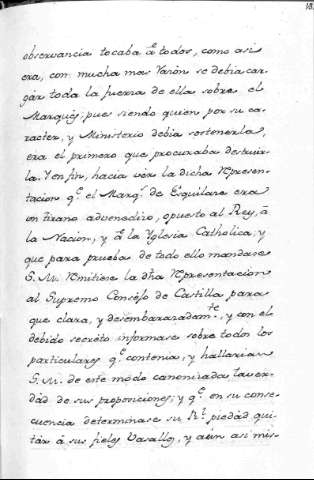 observancia tocaba â todos, como asi
era, con mucha mas razón se debia car-
gár toda la fuerza de ella sobre el
Marqués; pues siendo quien por su ca-
racter, y Ministerio debia sostenerla,
era el primero que procuraba destruir-
la. Y en fin, hacia vér la dicha Represen-
tacion q.e el Marq.s de Esquilace era
un tirano advenedizo, opuesto al Rey, â
la Nacion, y â la Yglesia Catholica; y
que para prueba de todo ello mandase
S. M. Remitiese la dha Representacion
al Supremo Conséjo de Castilla para
que clara, y desembarazadam.te, y con el
debido secréto informase sobre todos los
particulares q.e contenia; y hallarian
S. M. de este modo canonizada la ver-
dád de sus proposiciones; y q.e en su conse-
cuencia determinase su R.l piedád qui-
tár â sus fieles Vasallos, y aún asi mis-